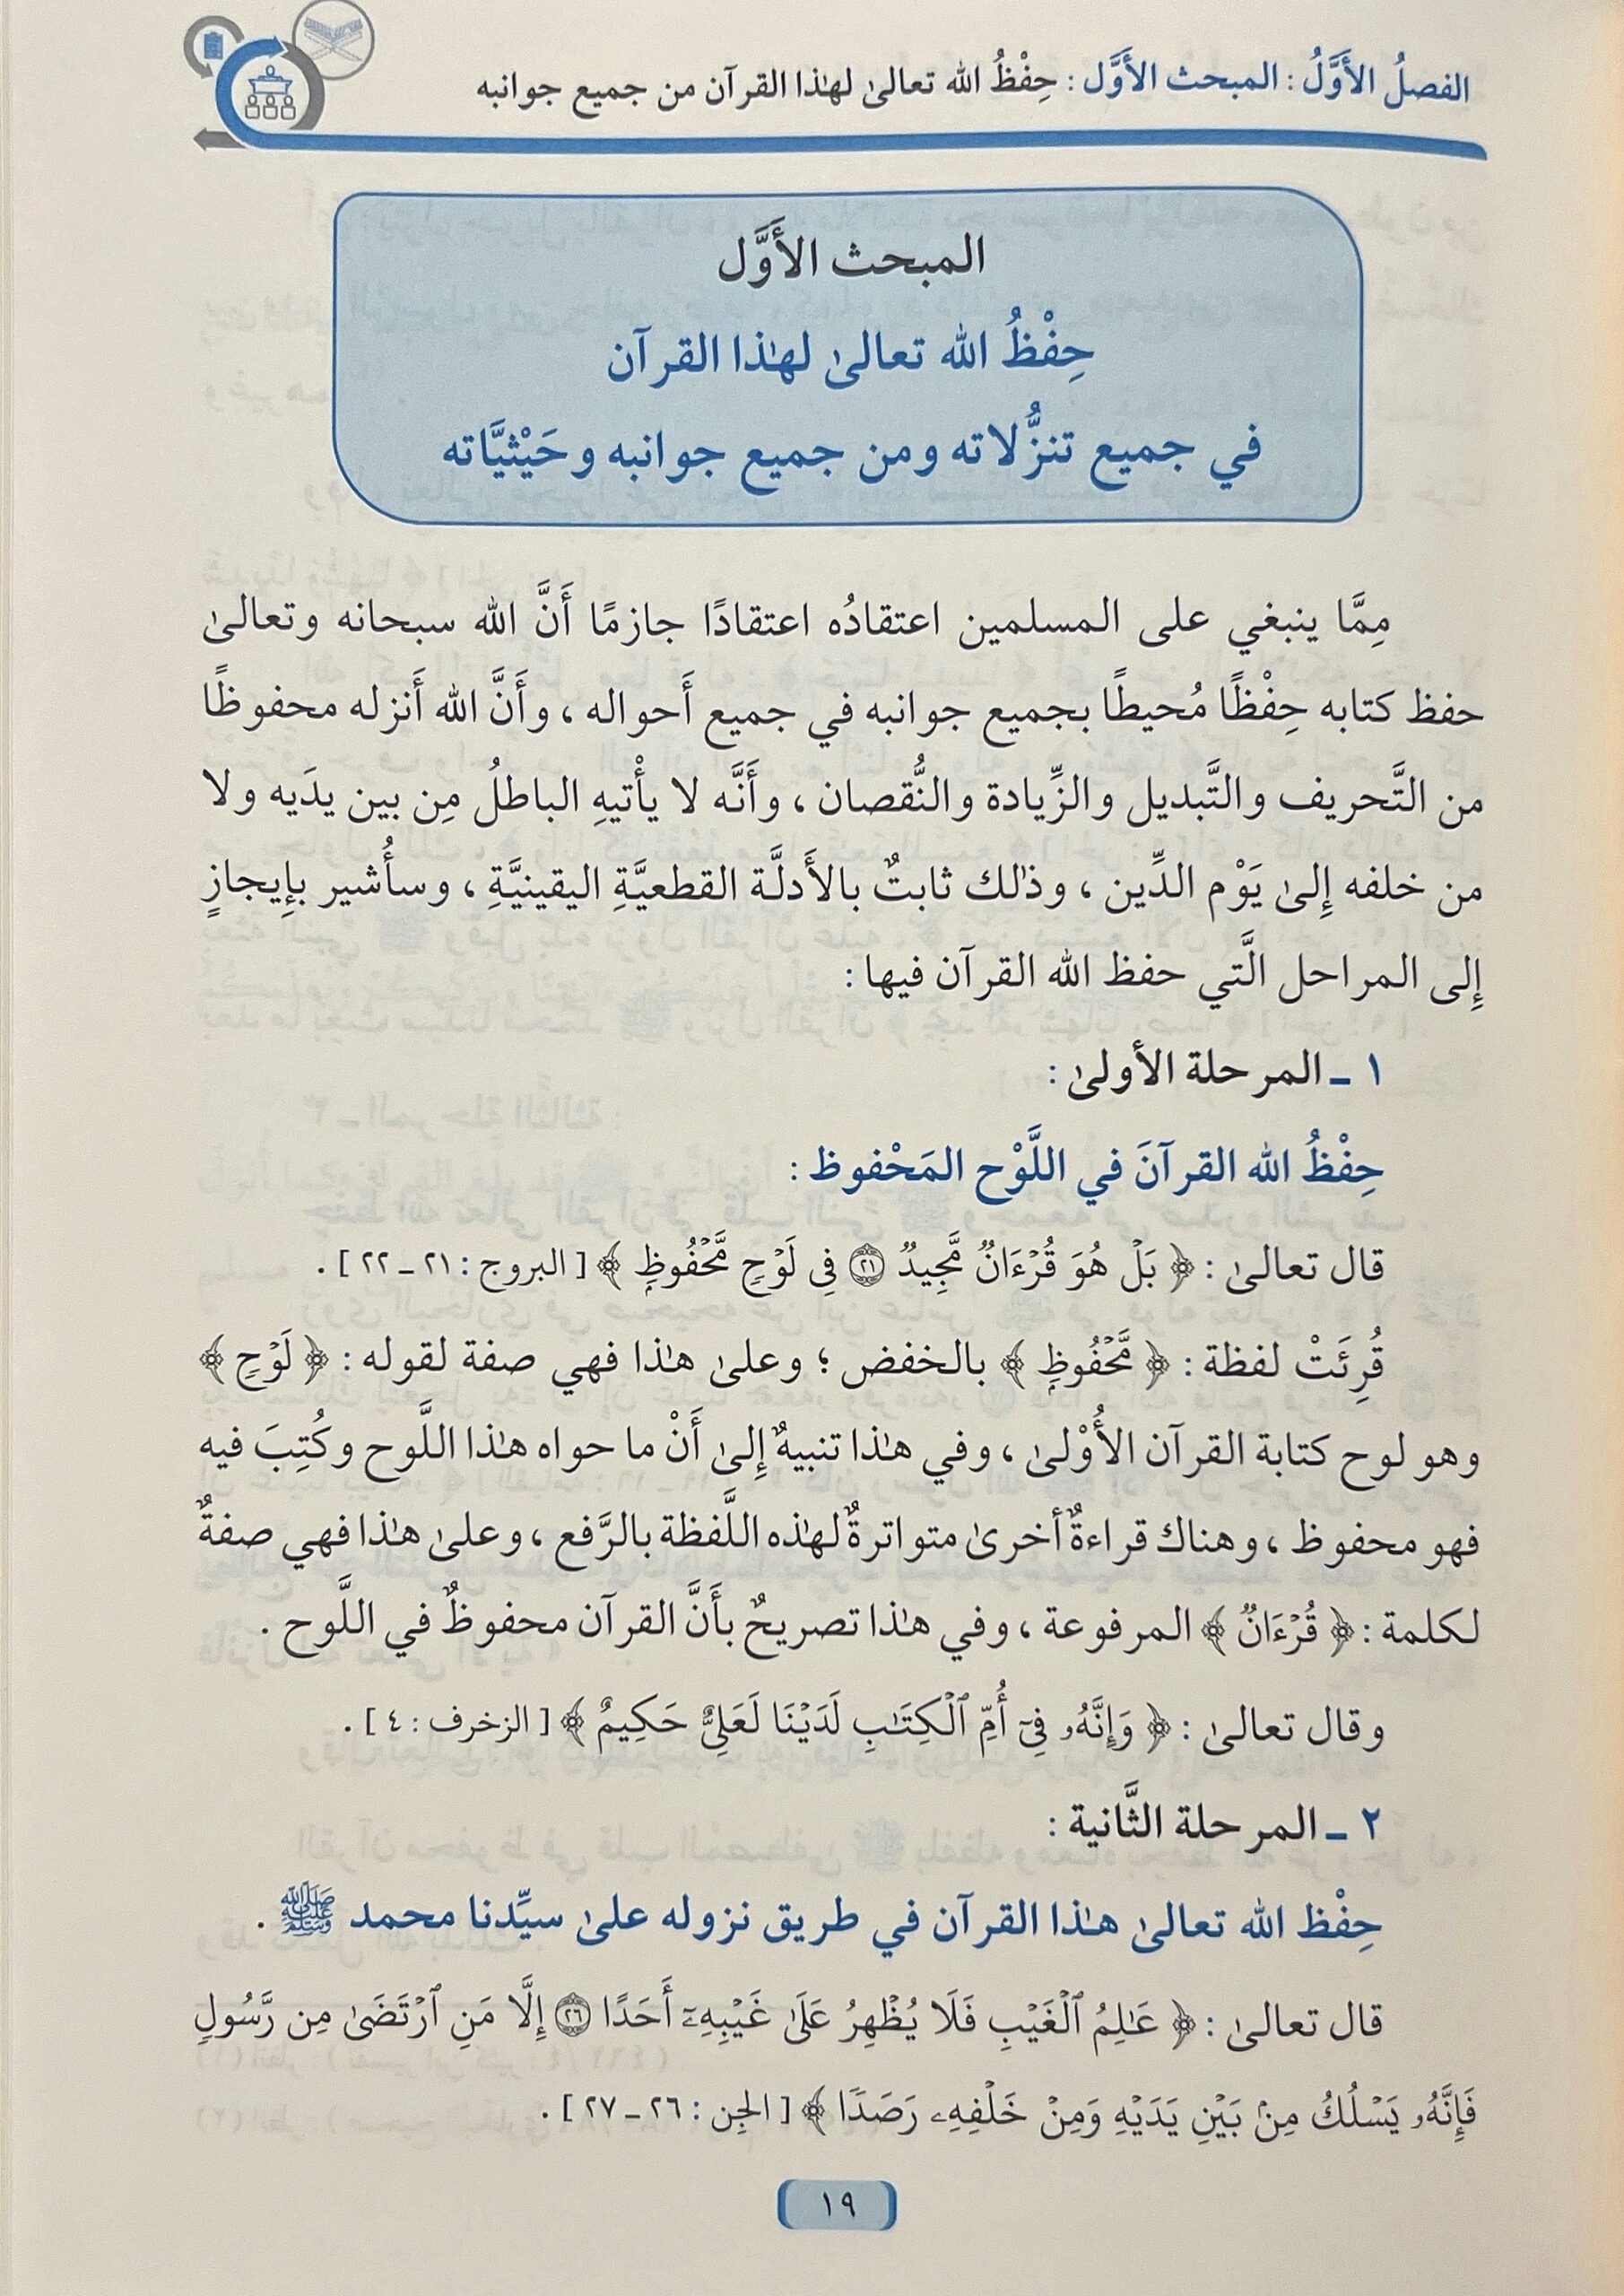 الفصلُ الأَوَّلُ : المبحث الأَوَّل : حِفْظُ الله تعالىٰ لهٰذا القرآن من جميع جوانبه
المبحث الأَوَّل
حِفْظُ الله تعالىٰ لهٰذا القرآن
في جميع تنزُّلاته ومن جميع جوانبه وحَيْثيَّاته
مِمَّا ينبغي على المسلمين اعتقادُه اعتقادًا جازمًا أَنَّ الله سبحانه وتعالىٰ
حفظ كتابه حِفْظًا مُحيطًا بجميع جوانبه في جميع أَحواله ، وأَنَّ الله أَنزله محفوظًا
من التَّحريف والتَّبديل والزِّيادة والنُّقصان ، وأَنَّه لا يأْتيهِ الباطلُ مِن بين يدَيه ولا
من خلفه إِلىٰ يَوْم الدِّين ، وذٰلك ثابتٌ بالأَدلَّة القطعيَّةِ اليقينيَّةِ ، وسأُشير بإِيجازٍ
إِلى المراحل الَّتي حفظ الله القرآن فيها :
١ ـ المرحلة الأولىٰ :
حِفْظُ الله القرآنَ في اللَّوْح المَحْفوظ :
قال تعالىٰ : ﴿ بَلْ هُوَ قُرْءَانٌ مَّجِيدٌ ۝٢١ فِى لَوْحٍ مَّحْفُوظٍۭ ﴾ [ البروج : ٢١ ـ ٢٢ ] .
قُرِئَتْ لفظة : ﴿ مَّحْفُوظٍۭ ﴾ بالخفض ؛ وعلىٰ هٰذا فهي صفة لقوله : ﴿ لَوْحٍ ﴾
وهو لوح كتابة القرآن الأُوْلىٰ ، وفي هٰذا تنبيهٌ إِلىٰ أَنْ ما حواه هٰذا اللَّوح وكُتِبَ فيه
فهو محفوظ ، وهناك قراءةٌ أخرىٰ متواترةٌ لهٰذه اللَّفظة بالرَّفع ، وعلىٰ هٰذا فهي صفةٌ
لكلمة : ﴿ قُرْءَانٌ ﴾ المرفوعة ، وفي هٰذا تصريحٌ بأَنَّ القرآن محفوظٌ في اللَّوح .
وقال تعالىٰ : ﴿ وَإِنَّهُۥ فِىٓ أُمِّ ٱلْكِتَٰبِ لَدَيْنَا لَعَلِىٌّ حَكِيمٌ ﴾ [ الزخرف : ٤ ] .
٢ ـ المرحلة الثَّانية :
حِفْظ الله تعالىٰ هٰذا القرآن في طريق نزوله علىٰ سيِّدنا محمد ﷺ .
قال تعالىٰ : ﴿ عَٰلِمُ ٱلْغَيْبِ فَلَا يُظْهِرُ عَلَىٰ غَيْبِهِۦٓ أَحَدًا ۝٢٦ إِلَّا مَنِ ٱرْتَضَىٰ مِن رَّسُولٍ
فَإِنَّهُۥ يَسْلُكُ مِنۢ بَيْنِ يَدَيْهِ وَمِنْ خَلْفِهِۦ رَصَدًا ﴾ [ الجن : ٢٦ ـ ٢٧ ] .
١٩